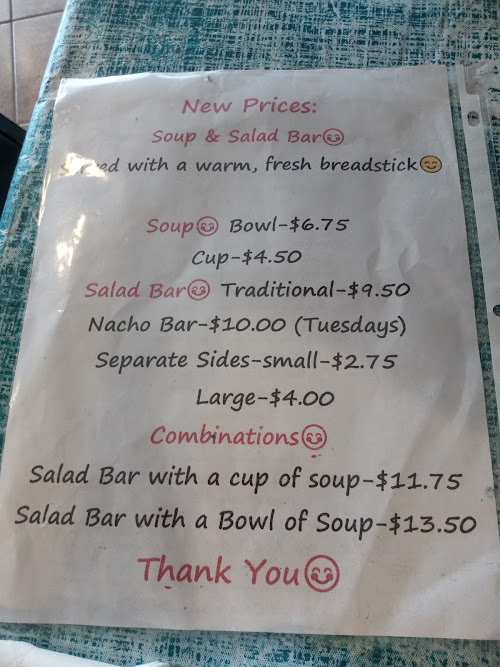 New Prices:
Soup & Salad Bar😊
Served with a warm, fresh breadstick😊
Soup😊 Bowl-$6.75
Cup-$4.50
Salad Bar😊 Traditional-$9.50
Nacho Bar-$10.00 (Tuesdays)
Separate Sides-small-$2.75
Large-$4.00
Combinations😊
Salad Bar with a cup of soup-$11.75
Salad Bar with a Bowl of Soup-$13.50
Thank You😊